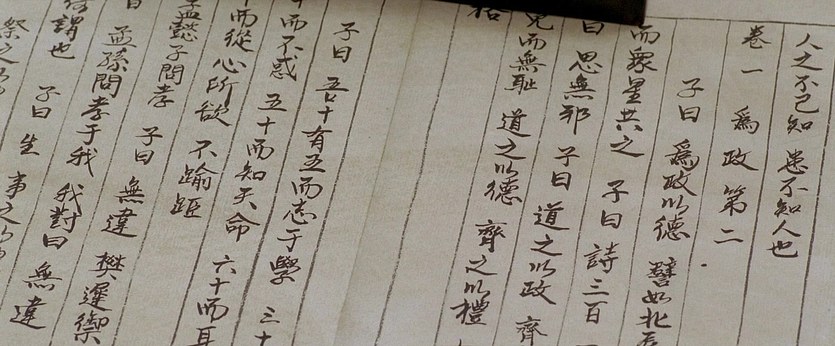 人之不己知 患不知人也
卷一 為政第二
子曰 為政以德 譬如北辰
而眾星共之 子曰 詩三百
曰 思無邪 子曰 道之以政 齊
免而無恥 道之以德 齊之以禮
格
子曰 吾十有五而志于學 三十
而不惑 五十而知天命 六十而耳
而從心所欲 不踰距
孟懿子問孝 子曰 無違 樊遲御
曰 孟孫問孝于我 我對曰 無違
何謂也 子曰 生 事之以
祭之